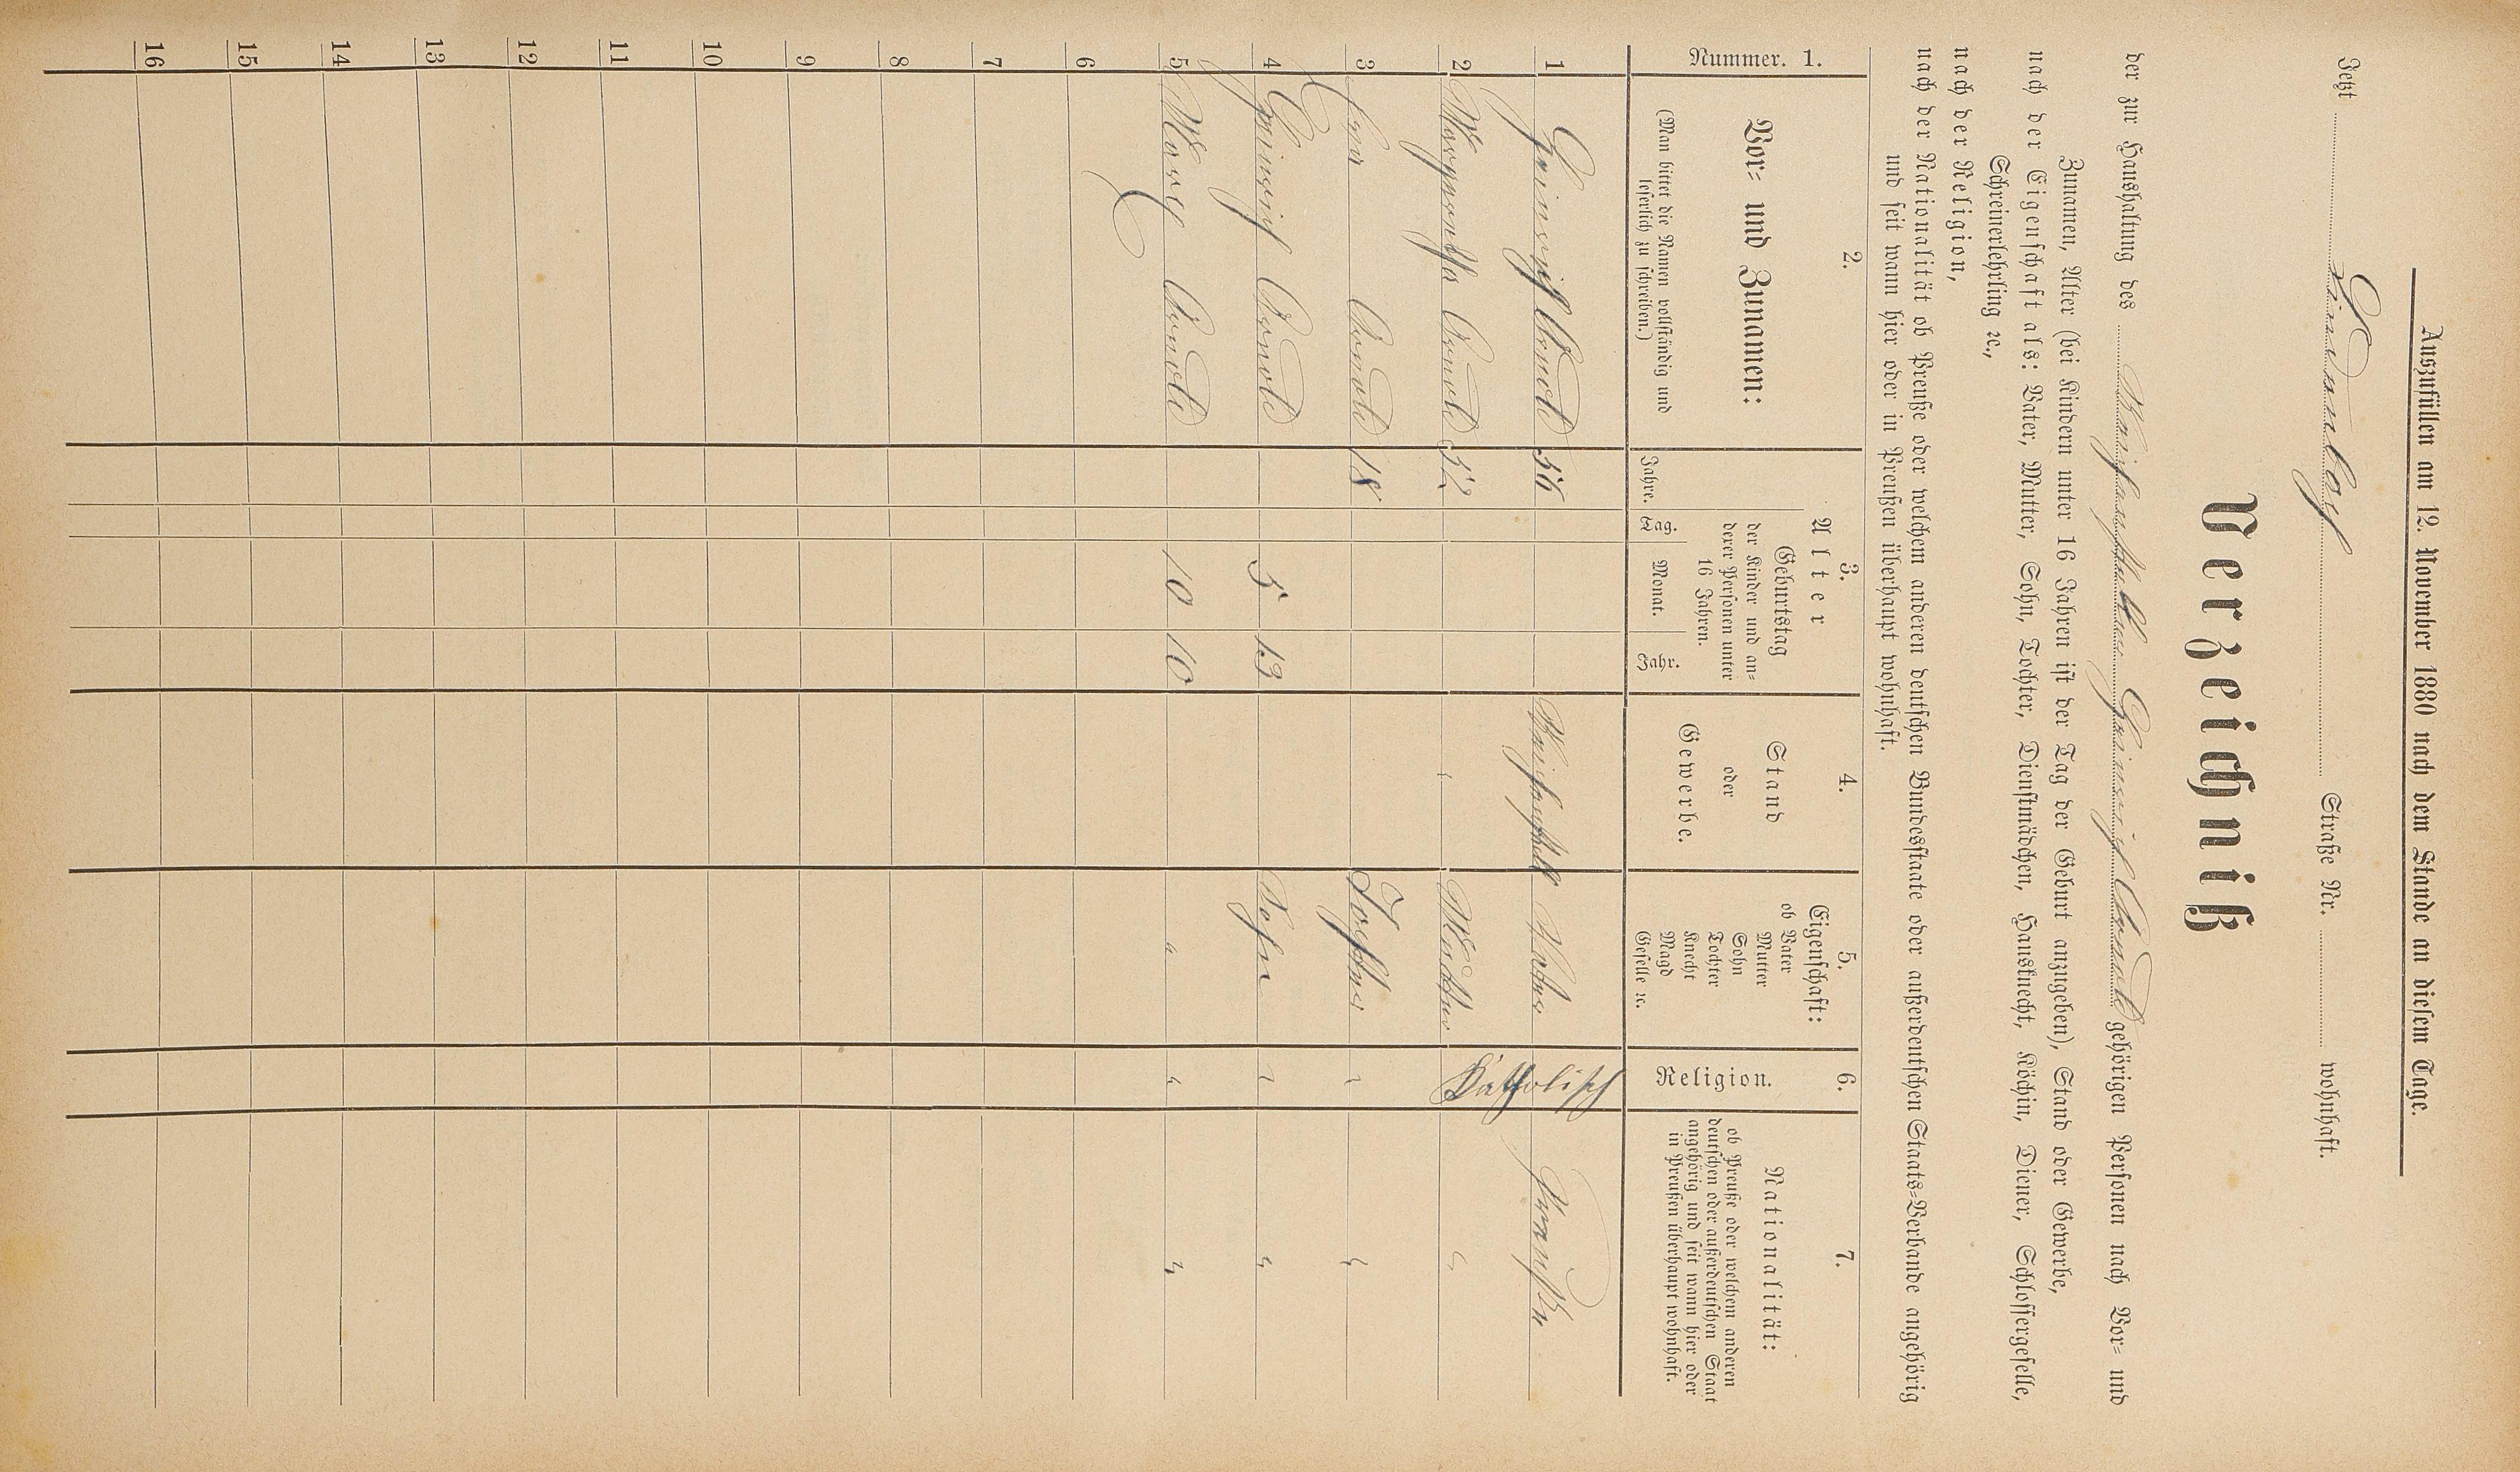 Auszufüllen am 12. November 1880 nach dem Stande an diesem Tage.
Jetzt Lindenbach Straße Nr. wohnhaft.
Verzeichniß
der zur Haushaltung des Heinrich Arnold gehörigen Personen nach Vor= und
Zunamen, Alter (bei Kindern unter 16 Jahren ist der Tag der Geburt anzugeben), Stand oder Gewerbe,
nach der Eigenschaft als: Vater, Mutter, Sohn, Tochter, Dienstmädchen, Hausknecht, Köchin, Diener, Schlossergeselle,
Schreinerlehrling ꝛc.,
nach der Religion,
nach der Nationalität ob Preuße oder welchem anderen deutschen Bundesstaate oder außerdeutschen Staats=Verbande angehörig
und seit wann hier oder in Preußen überhaupt wohnhaft.
Nummer. 1.
2.
Vor= und Zunamen:
(Man bittet die Namen vollständig und
leserlich zu schreiben.)
3.
Alter
Jahre.
Geburtstag
der Kinder und an=
derer Personen unter
16 Jahren.
Tag. Monat. Jahr.
4.
Stand
oder
Gewerbe.
5.
Eigenschaft:
ob Vater
Mutter
Sohn
Tochter
Knecht
Magd
Geselle ꝛc.
6.
Religion.
7.
Nationalität:
ob Preuße oder welchem anderen
deutschen oder außerdeutschen Staat
angehörig und seit wann hier oder
in Preußen überhaupt wohnhaft.
1 Heinrich Arnold 56 Vater Katholisch Preußen
2 Margaretha Arnold 52 Mutter "
3 Arnold 18 Tochter " "
4 Heinrich Arnold 5 13 Sohn " "
5 Arnold 10 10 " " "
6
7
8
9
10
11
12
13
14
15
16